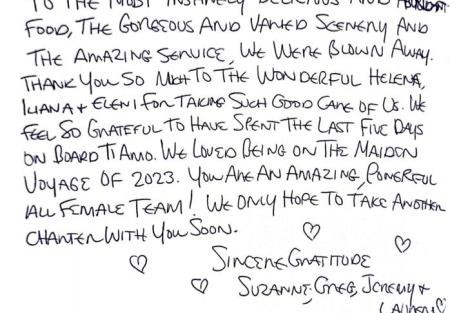 TO THE MOST INSANELY DELICIOUS AND ABUNDANT
FOOD, THE GORGEOUS AND VARIED SCENERY AND
THE AMAZING SERVICE, WE WERE BLOWN AWAY.
THANK YOU SO MUCH TO THE WONDERFUL HELENA,
ILIANA & ELENI FOR TAKING SUCH GOOD CARE OF US. WE
FEEL SO GRATEFUL TO HAVE SPENT THE LAST FIVE DAYS
ON BOARD TI AMO. WE LOVED BEING ON THE MAIDEN
VOYAGE OF 2023. YOU ARE AN AMAZING, POWERFUL
ALL FEMALE TEAM! WE ONLY HOPE TO TAKE ANOTHER
CHARTER WITH YOU SOON.
SINCERE GRATITUDE
SUZANNE, GREG, JEREMY &
LAUREN